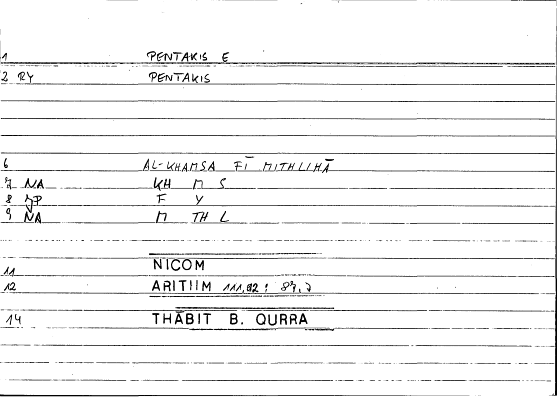 1 PENTAKIS E
2 RY PENTAKIS
6 AL-KHAMSA FĪ MITHLIHĀ
7 NA KH M S
8 JP F Y
9 NA M TH L
11 NICOM
12 ARITHM 111,02 : 87.7
14 THĀBIT B. QURRA